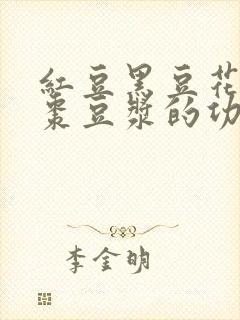 紅豆黑豆花
棗豆漿的功
李金明